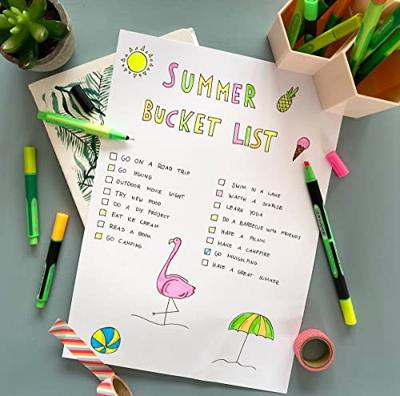 SUMMER
BUCKET LIST
GO ON A ROAD TRIP
GO HIKING
OUTDOOR MOVIE NIGHT
TRY NEW FOOD
DO A DIY PROJECT
EAT ICE CREAM
READ A BOOK
GO CAMPING
SWIM IN A LAKE
WATCH A SUNRISE
LEARN YOGA
DO A BARBECUE WITH FRIENDS
HAVE A PICNIC
MAKE A CAMPFIRE
GO
HAVE A GREAT SUMMER